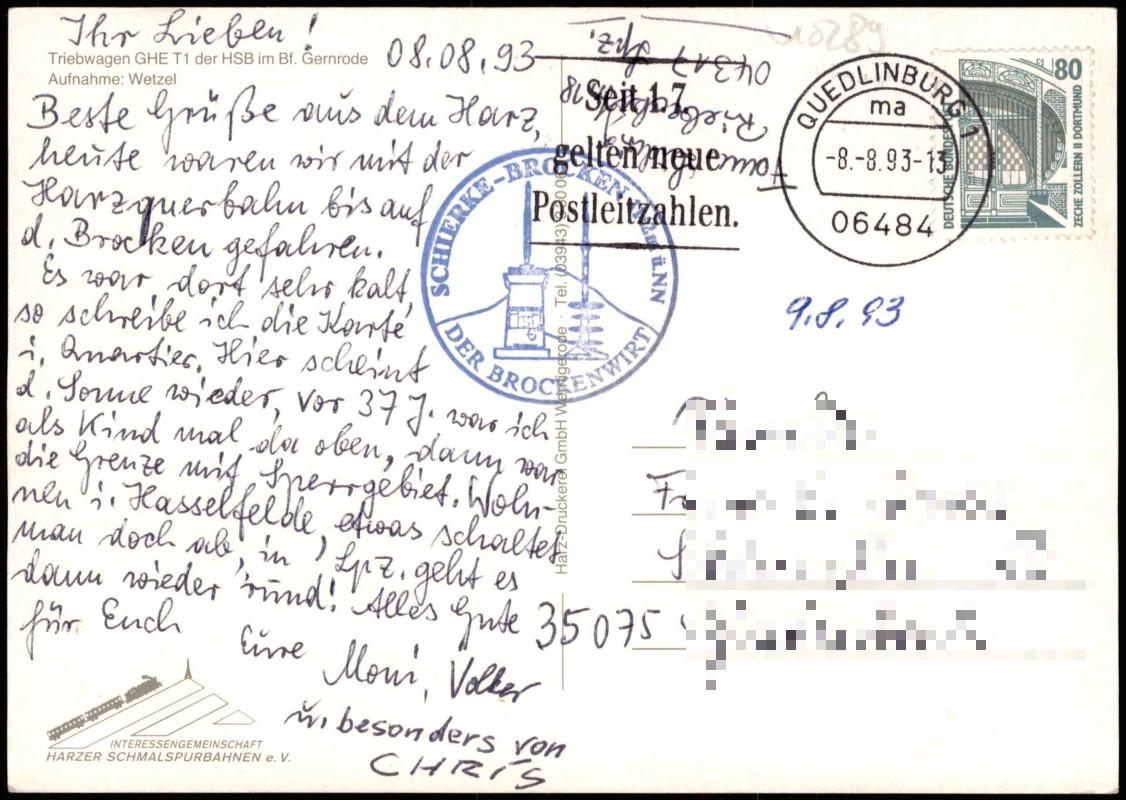 Ihr Lieben!
Triebwagen GHE T1 der HSB im Bf. Gernrode
Aufnahme: Wetzel
08.08.93
Beste Grüße aus dem Harz,
heute waren wir mit der
Harzquerbahn bis auf
d. Brocken gefahren.
Es war dort sehr kalt,
so schreibe ich die Karte
i. Quartier. Hier scheint
d. Sonne wieder, vor 37 J. war ich
als Kind mal da oben, dann war
die Grenze mit Sperrgebiet. Woh-
nen i. Hasselfelde, etwas schaltet
man doch ab, in Lpz. geht es
dann wieder rund! Alles Gute
für Euch
Eure
Moni, Volker
u. besonders von
CHRIS
INTERESSENGEMEINSCHAFT
HARZER SCHMALSPURBAHNEN e. V.
Harz-Druckerei GmbH Wernigerode · Tel. (03943)
SCHIERKE-BROCKEN
DER BROCKENWIRT
04317 Lpz.
Seit 1.7.
gelten neue
Postleitzahlen.
QUEDLINBURG 1
ma
-8.-8.93-13
06484
80
DEUTSCHE BUNDES
ZECHE ZOLLERN II DORTMUND
9.8.93
35075